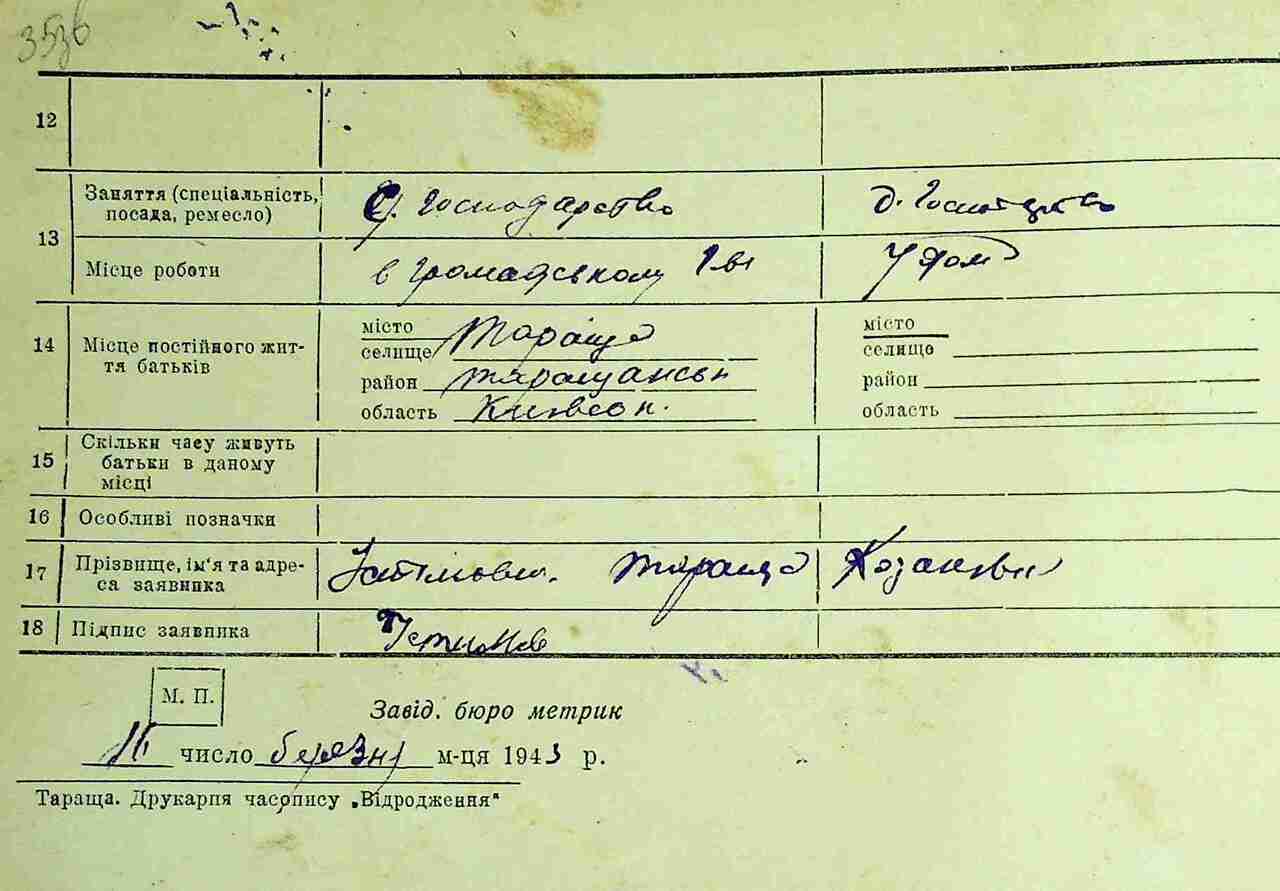 3536
12
13
Заняття (спеціальність, посада, ремесло)
С. Господарство
Д. Господарство
Місце роботи
в громадському
У дома
14
Місце постійного життя батьків
місто
селище Тараща
район Таращанськ
область Київськ.
місто
селище
район
область
15
Скільки часу живуть батьки в даному місці
16
Особливі позначки
17
Прізвище, ім'я та адреса заявника
Тараща
18
Підпис заявника
М. П.
Завід. бюро метрик
16 число березня м-ця 1943 р.
Тараща. Друкарня часопису „Відродження"